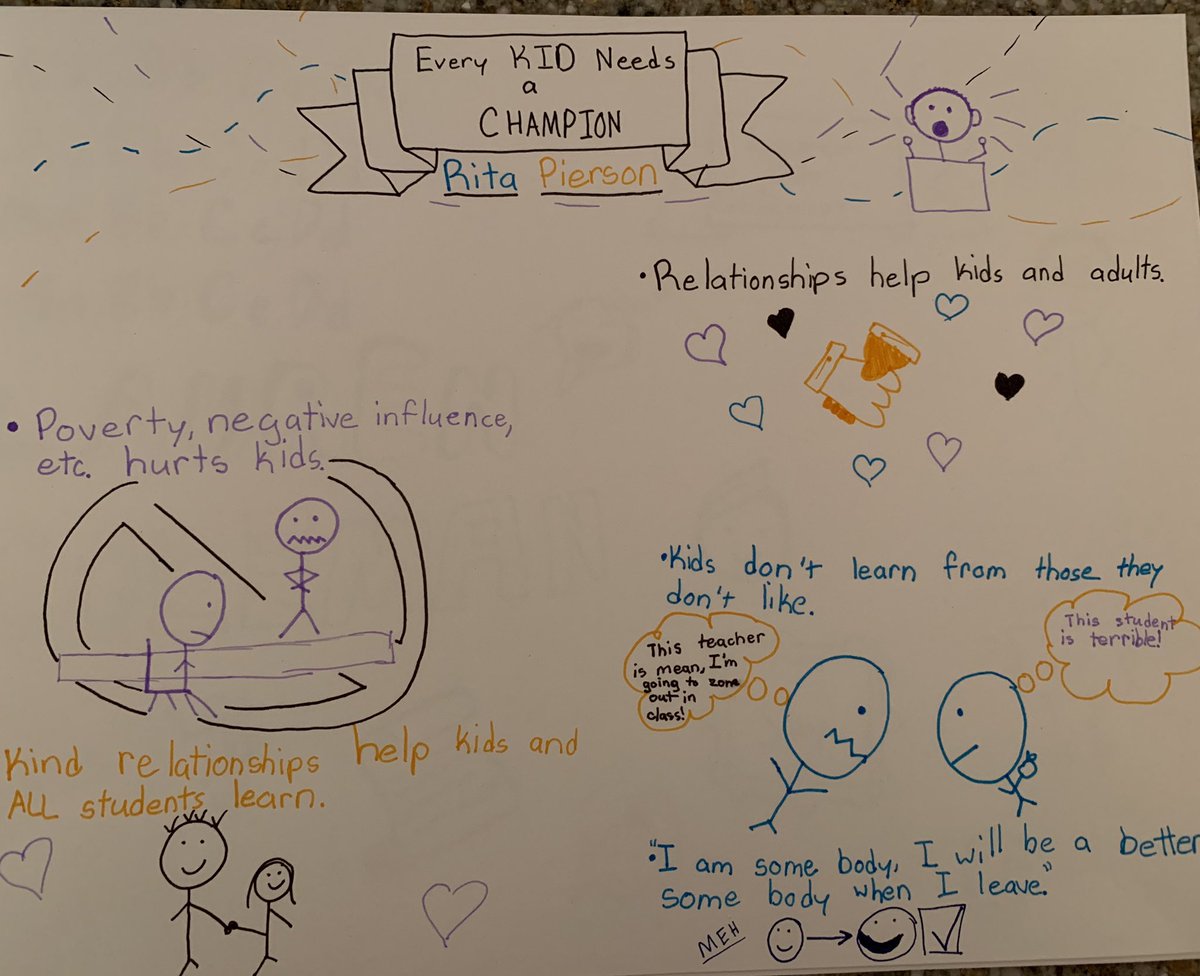 Every KID Needs
a
CHAMPION
Rita Pierson
• Relationships help kids and adults.
• Poverty, negative influence,
etc. hurts kids.
•Kids don't learn from those they
don't like.
This teacher
is mean, I'm
going to zone
out in
class!
This student
is terrible!
Kind relationships help kids and
ALL students learn.
"•I am some body, I will be a better
some body when I leave."
MEH